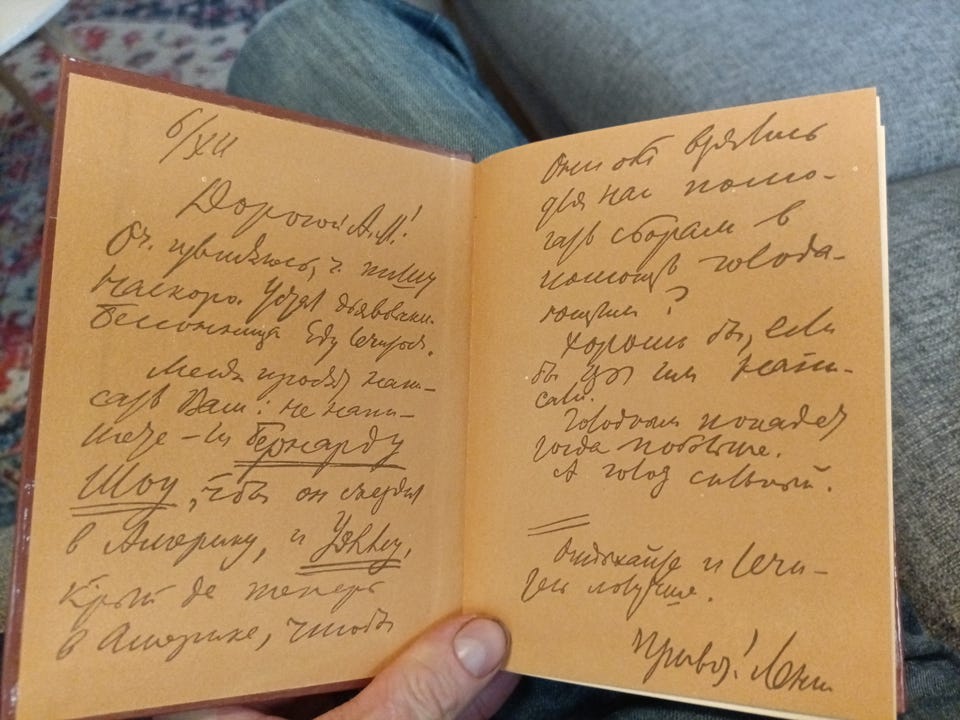 6/XII
Дорогой А.М!
Оч. извиняюсь, ч. пишу
наскоро. Устал дьявольски.
Бессонница. Еду лечиться.
Меня просят напи-
сать Вам: не напи-
шете-ли Бернарду
Шоу, чтобы он съездил
в Америку, и Уэллсу,
который де теперь
в Америке, чтобы
Они оба взялись
для нас помо-
гать сборам в
помощь голода-
ющим?
Хорошо бы, если
бы Вы им напи-
сали.
Голодным попадет
тогда побольше.
А голод сильный.
Отдыхайте и лечи-
тесь получше.
Привет! Ленин